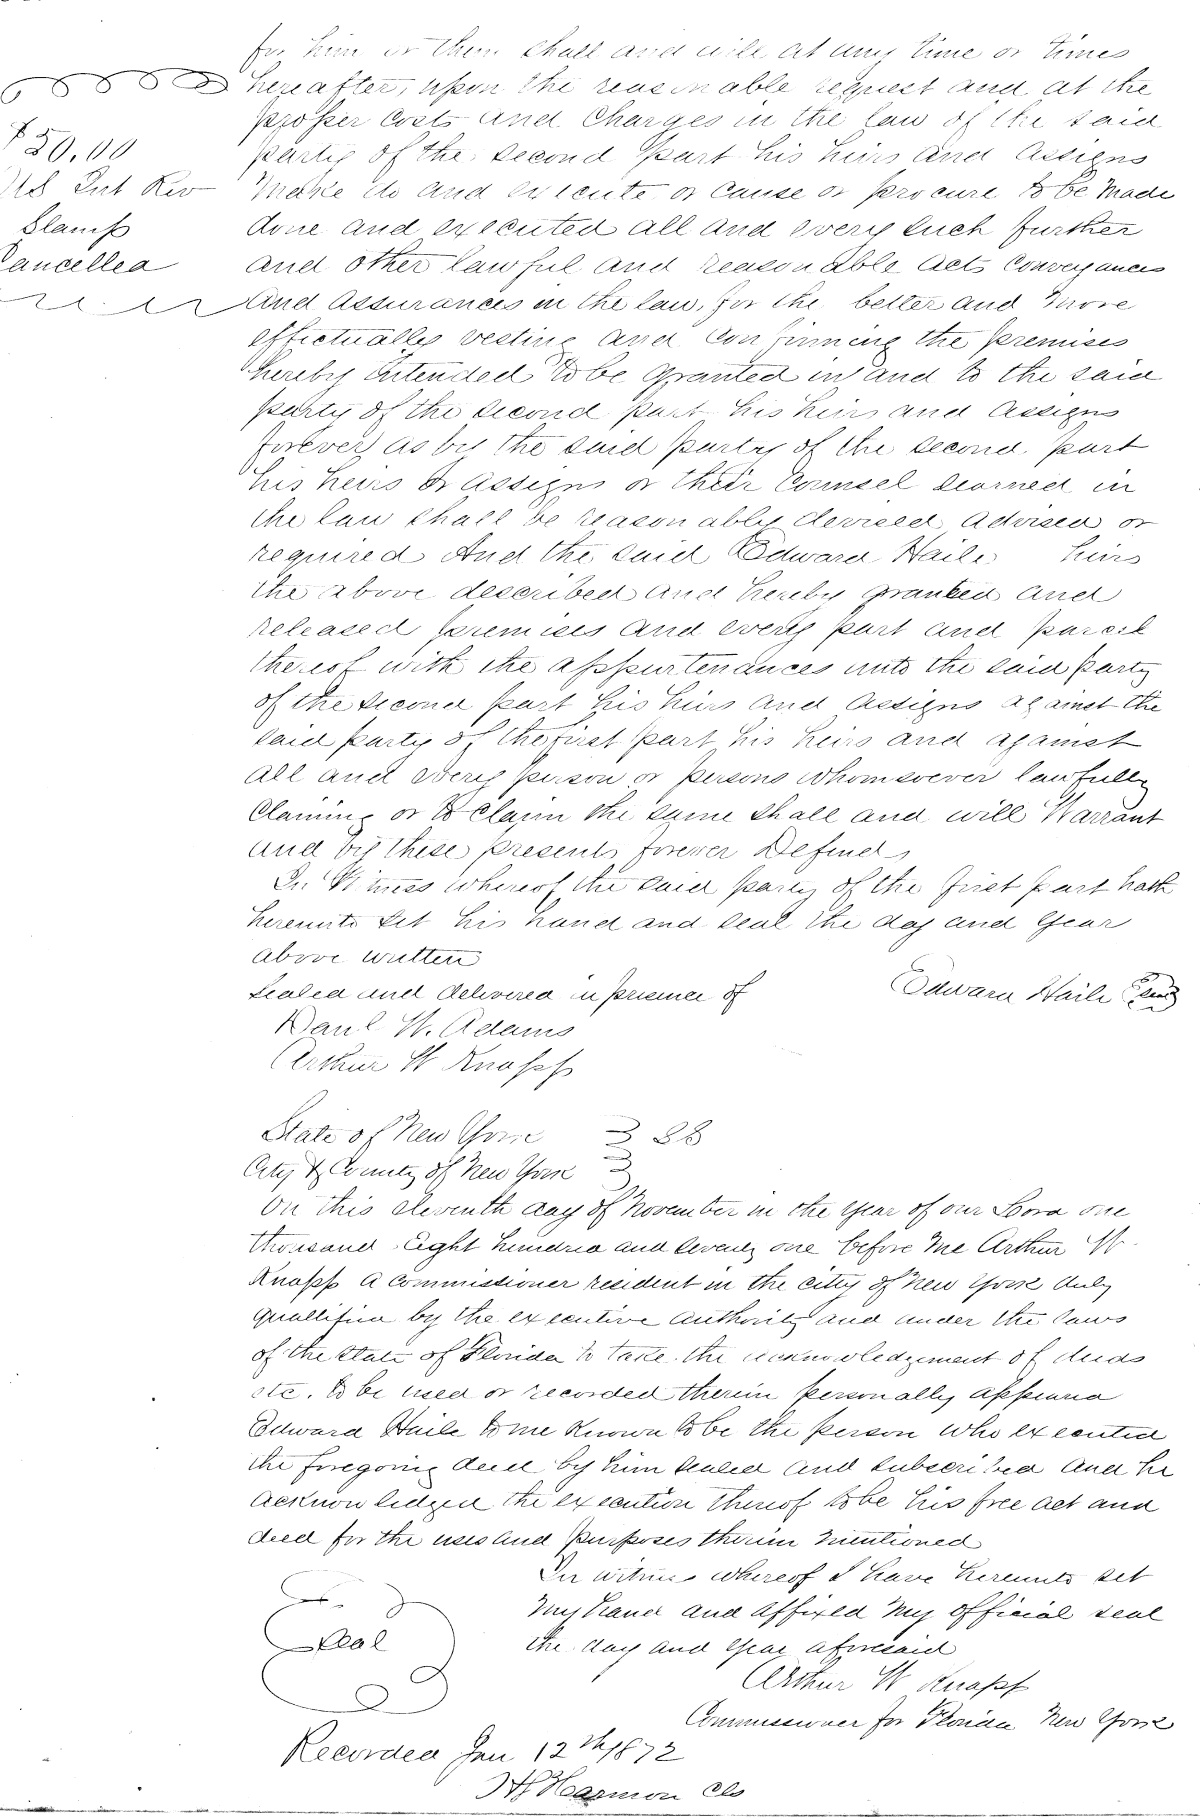 for him or them shall and will at any time or times
hereafter, upon the reasonable request and at the
proper Costs and Charges in the law of the said
party of the second part his heirs and assigns
Make do and execute or cause or procure to be Made
done and executed all and every such further
and other lawful and reasonable acts Conveyances
And assurances in the law, for the better and more
effectually vesting and Confirming the premises
hereby intended to be granted in and to the said
party of the second part his heirs and assigns
forever as by the said party of the second part
his heirs or assigns or their Counsel learned in
the law shall be reasonably devised, advised or
required And the said Edward Haile heirs
the above described and hereby granted and
released premises and every part and parcel
thereof with the appurtenances unto the said party
of the second part his heirs and assigns against the
said party of the first part his heirs and against
all and every person or persons whomsoever lawfully
Claiming or to Claim the same shall and will Warrant
and by these presents forever Defend
In Witness whereof the said party of the first part hath
hereunto set his hand and seal the day and year
above written
Sealed and delivered in presence of
Edward Haile Seal
Danl W. Adams
Arthur W Knapp
$50.00
US Int Rev
Stamp
Cancelled
State of New York SS
City & County of New York
On this eleventh day of November in the year of our Lord one
thousand Eight hundred and seventy one before me Arthur W
Knapp a Commissioner resident in the city of New York duly
qualified by the executive authority and under the laws
of the State of Florida to take the acknowledgement of deeds
etc. to be used or recorded therein personally appeared
Edward Haile to me Known to be the person who executed
the foregoing deed by him sealed and subscribed and he
acknowledged the execution thereof to be his free act and
deed for the uses and purposes therein mentioned
In witness whereof I have hereunto set
My hand and affixed My official seal
the day and year aforesaid
Seal
Arthur W Knapp
Commissioner for Florida New York
Recorded Jan 12th 1872
Harmon Clk